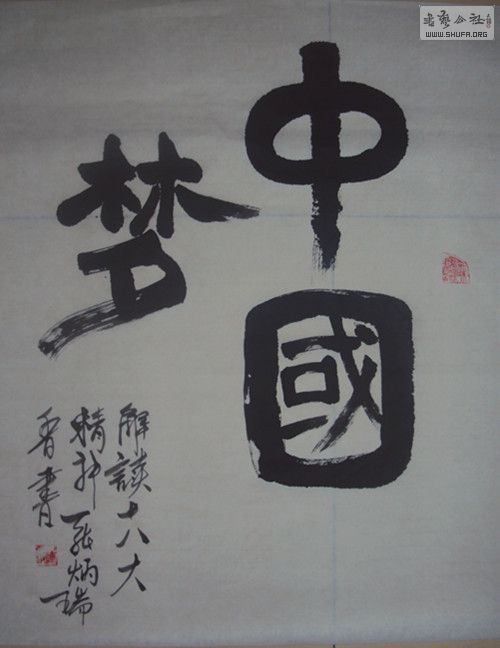 中國
梦
解读十八大
精神 罗炳瑞
书
书艺公社
WWW.SHUFA.ORG